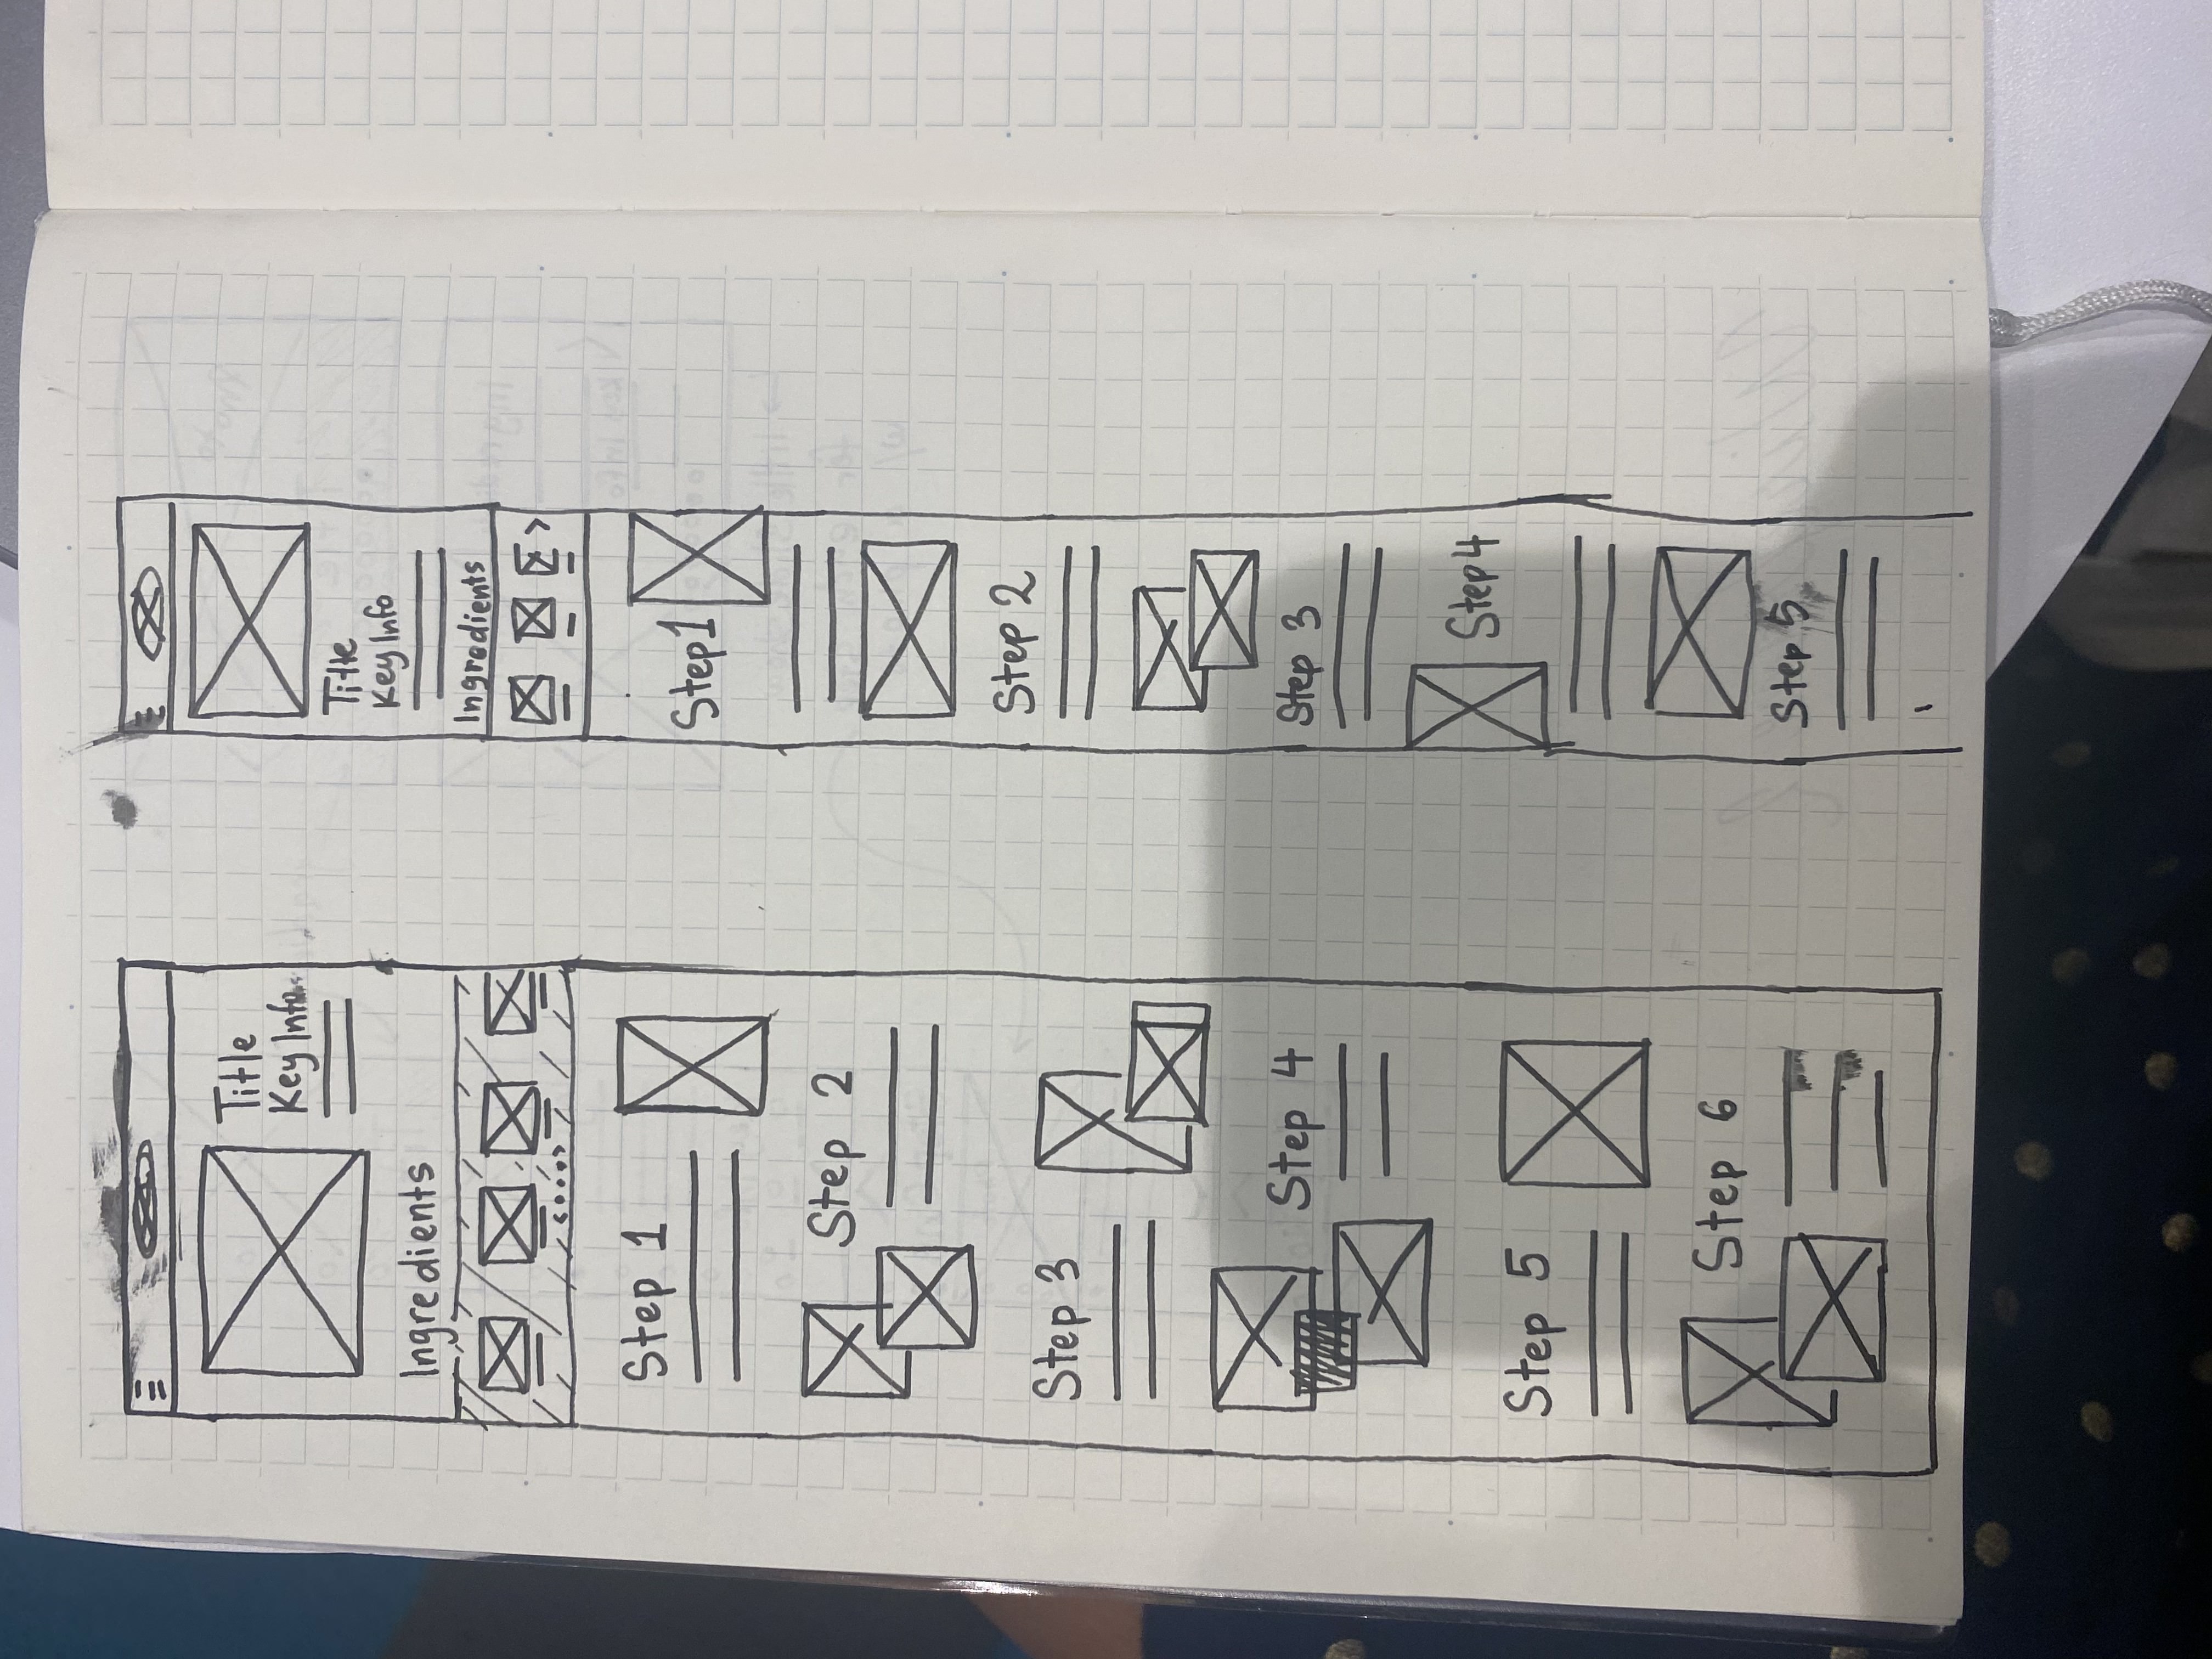 Title
Key Info
Ingredients
Step 1
Step 2
Step 3
Step 4
Step 5
Step 6
Title
Key Info
Ingredients
Step 1
Step 2
Step 3
Step 4
Step 5